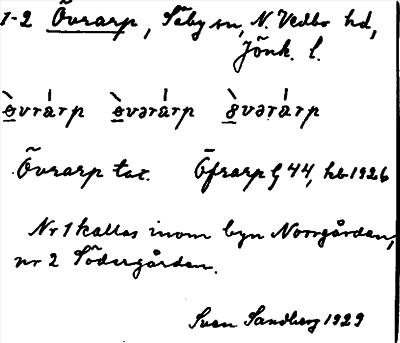 1-2 Övrarp, Säby sn, N. Vedbo hd,
Jönk. l.
Övrarp tax. Öfrarp G 44, hb 1926
Nr 1 kallas inom byn Norrgården,
nr 2 Södergården.
Sven Sandberg 1929